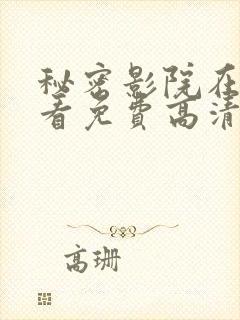 秘密影院在
看免费高清
高珊